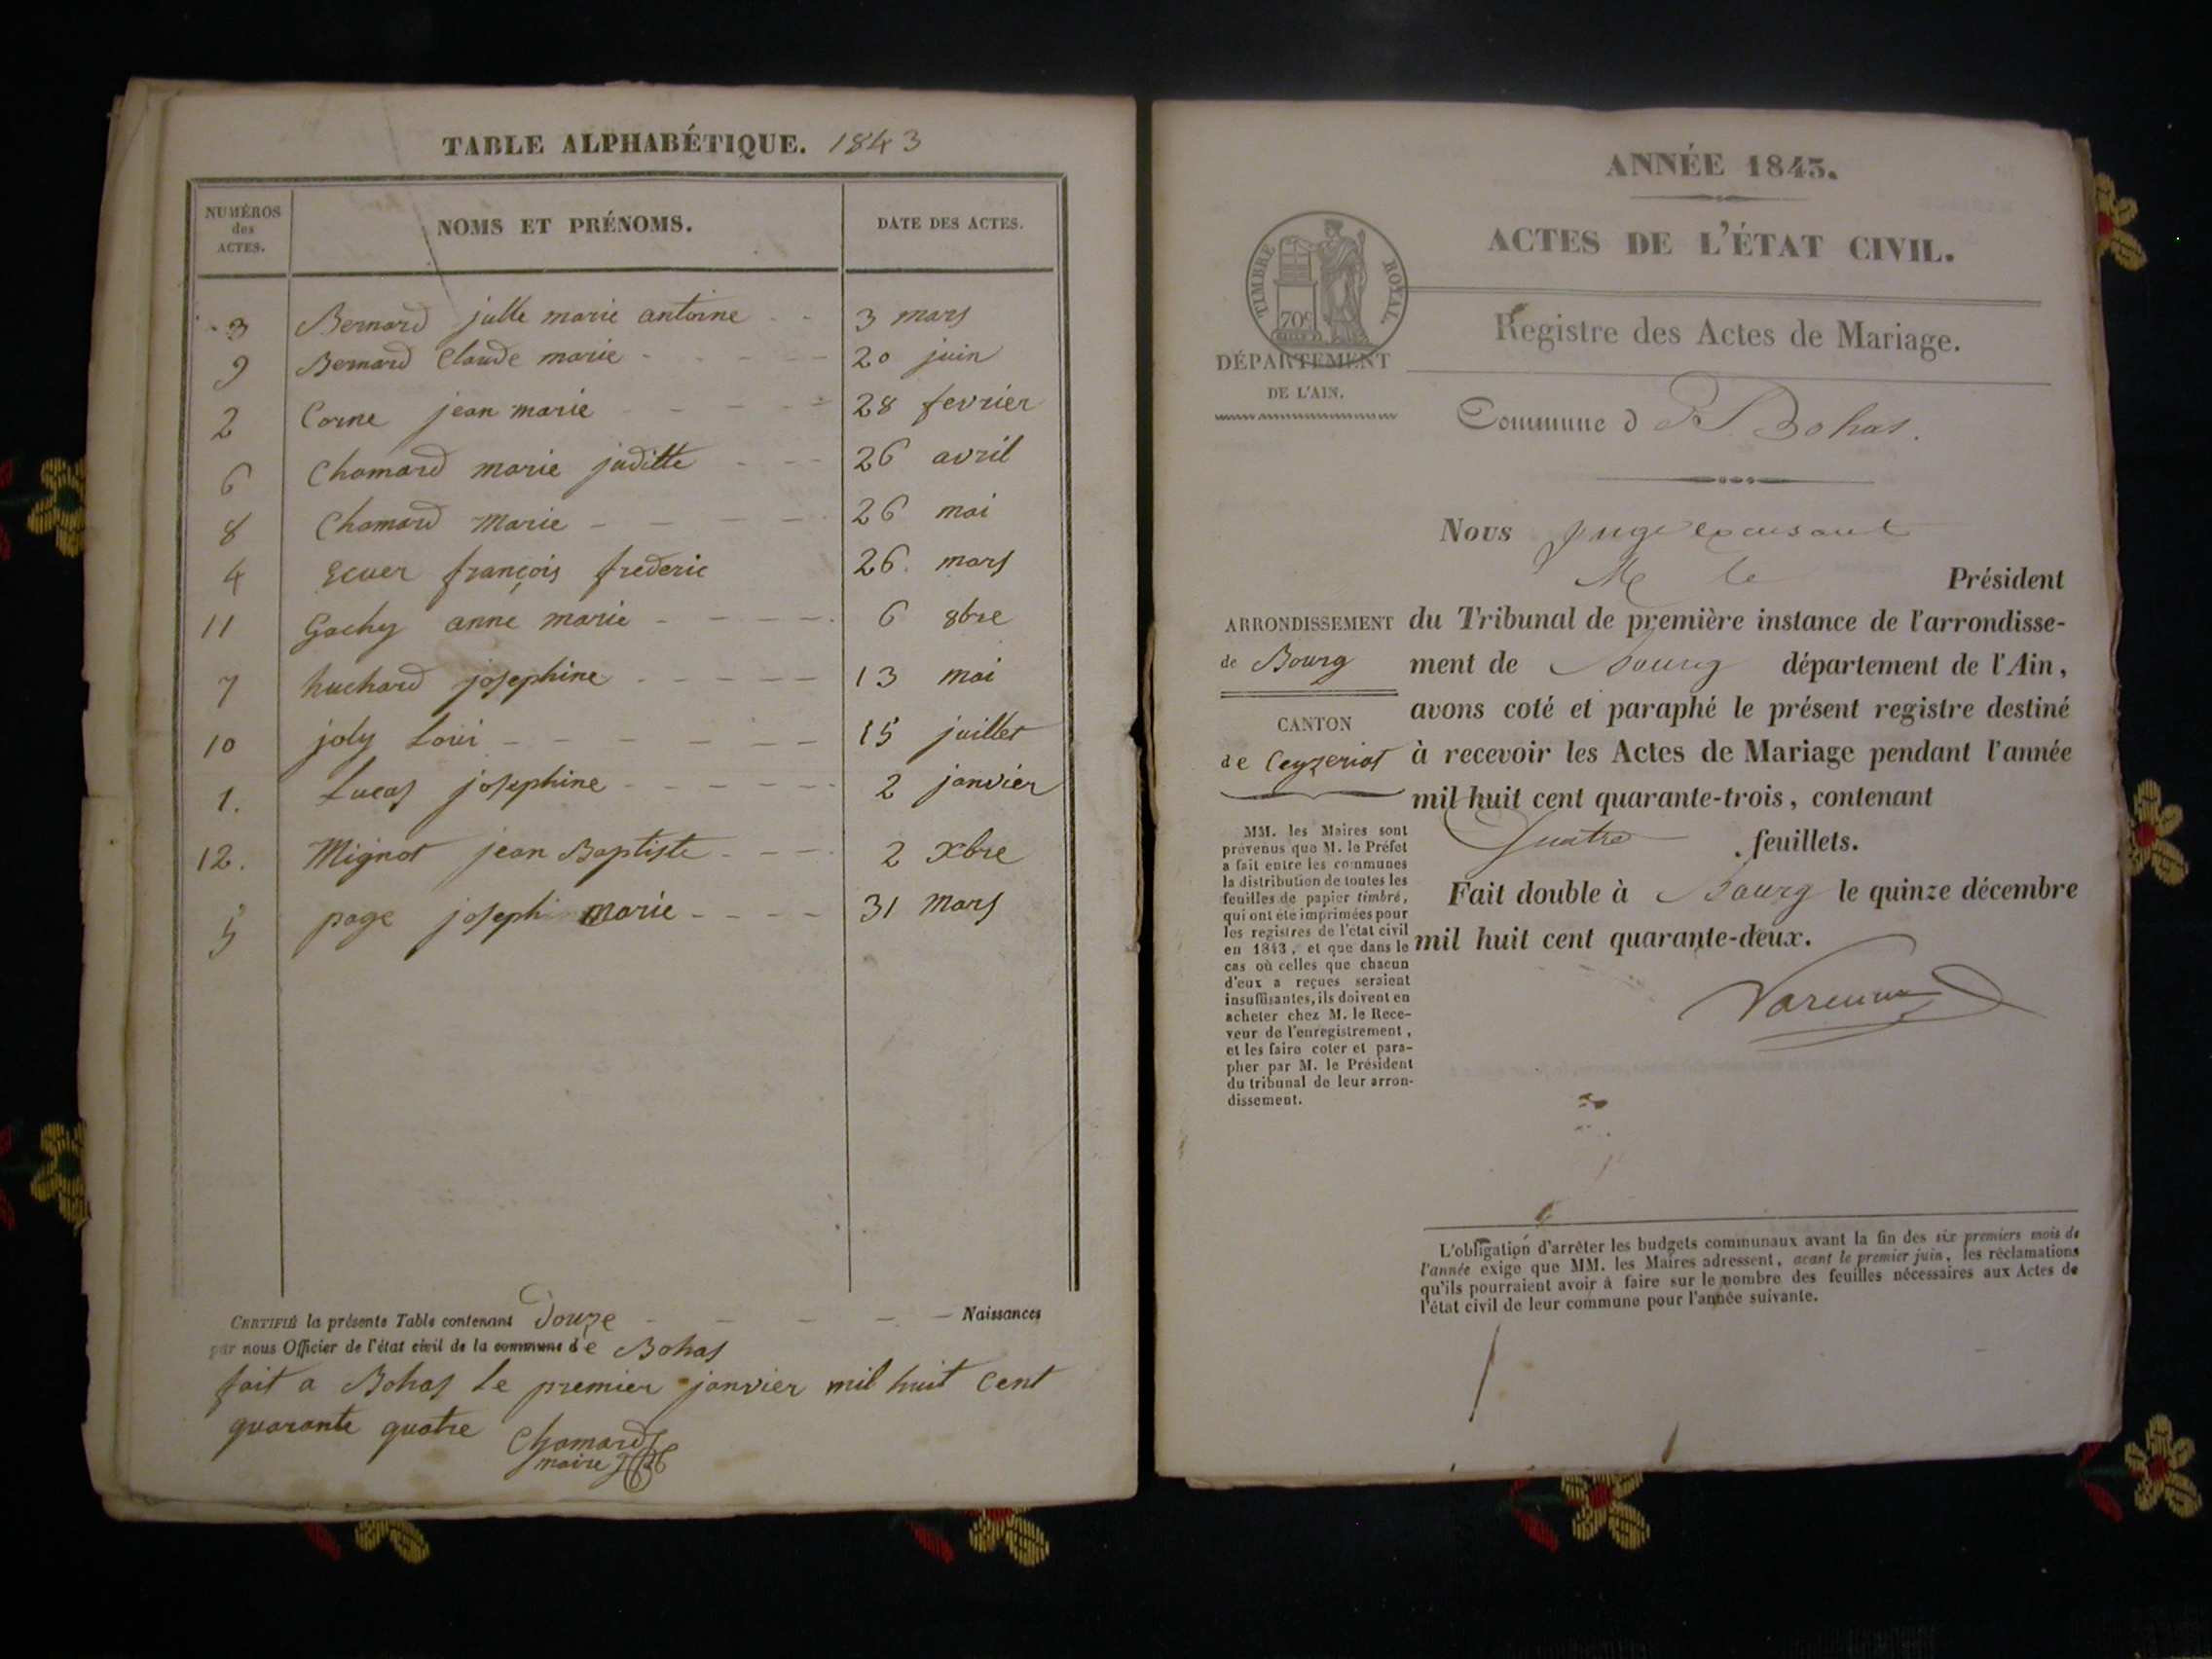 TABLE ALPHABÉTIQUE. 1843
NUMÉROS des ACTES. NOMS ET PRÉNOMS. DATE DES ACTES.
3 Bernard julle marie antoine 3 mars
9 Bernard Claude marie 20 juin
2 Corne jean marie 28 fevrier
6 Chamard marie juditte 26 avril
8 Chamard Marie 26 mai
4 Ecuer françois frederic 26 mars
11 Gachy anne marie 6 8bre
7 huchard josephine 13 mai
10 joly Loui 15 juillet
1. Lucas josephine 2 janvier
12. Mignot jean Baptiste 2 Xbre
5 page joseph Marie 31 Mars
CERTIFIÉ la présente Table contenant Douze Naissances
par nous Officier de l'état civil de la commune de Bohas
fait a Bohas le premier janvier mil huit cent
quarante quatre Chamard
maire
ANNÉE 1843.
ACTES DE L'ÉTAT CIVIL.
TIMBRE ROYAL.
70c
DÉPARTEMENT
DE L'AIN.
Registre des Actes de Mariage.
Commune d Bohas.
Nous juge
M le Président
ARRONDISSEMENT
de Bourg
CANTON
de Ceyzeriat
du Tribunal de première instance de l'arrondisse-
ment de Bourg département de l'Ain,
avons coté et paraphé le présent registre destiné
à recevoir les Actes de Mariage pendant l'année
mil huit cent quarante-trois, contenant
Quatre feuillets.
Fait double à Bourg le quinze décembre
mil huit cent quarante-deux.
MM. les Maires sont
prévenus que M. le Préfet
a fait entre les communes
la distribution de toutes les
feuilles de papier timbré,
qui ont été imprimées pour
les registres de l'état civil
en 1843, et que dans le
cas où celles que chacun
d'eux a reçues seraient
insuffisantes, ils doivent en
acheter chez M. le Rece-
veur de l'enregistrement,
et les faire coter et para-
pher par M. le Président
du tribunal de leur arron-
dissement.
L'obligation d'arrêter les budgets communaux avant la fin des six premiers mois de
l'année exige que MM. les Maires adressent, avant le premier juin, les réclamations
qu'ils pourraient avoir à faire sur le nombre des feuilles nécessaires aux Actes de
l'état civil de leur commune pour l'année suivante.